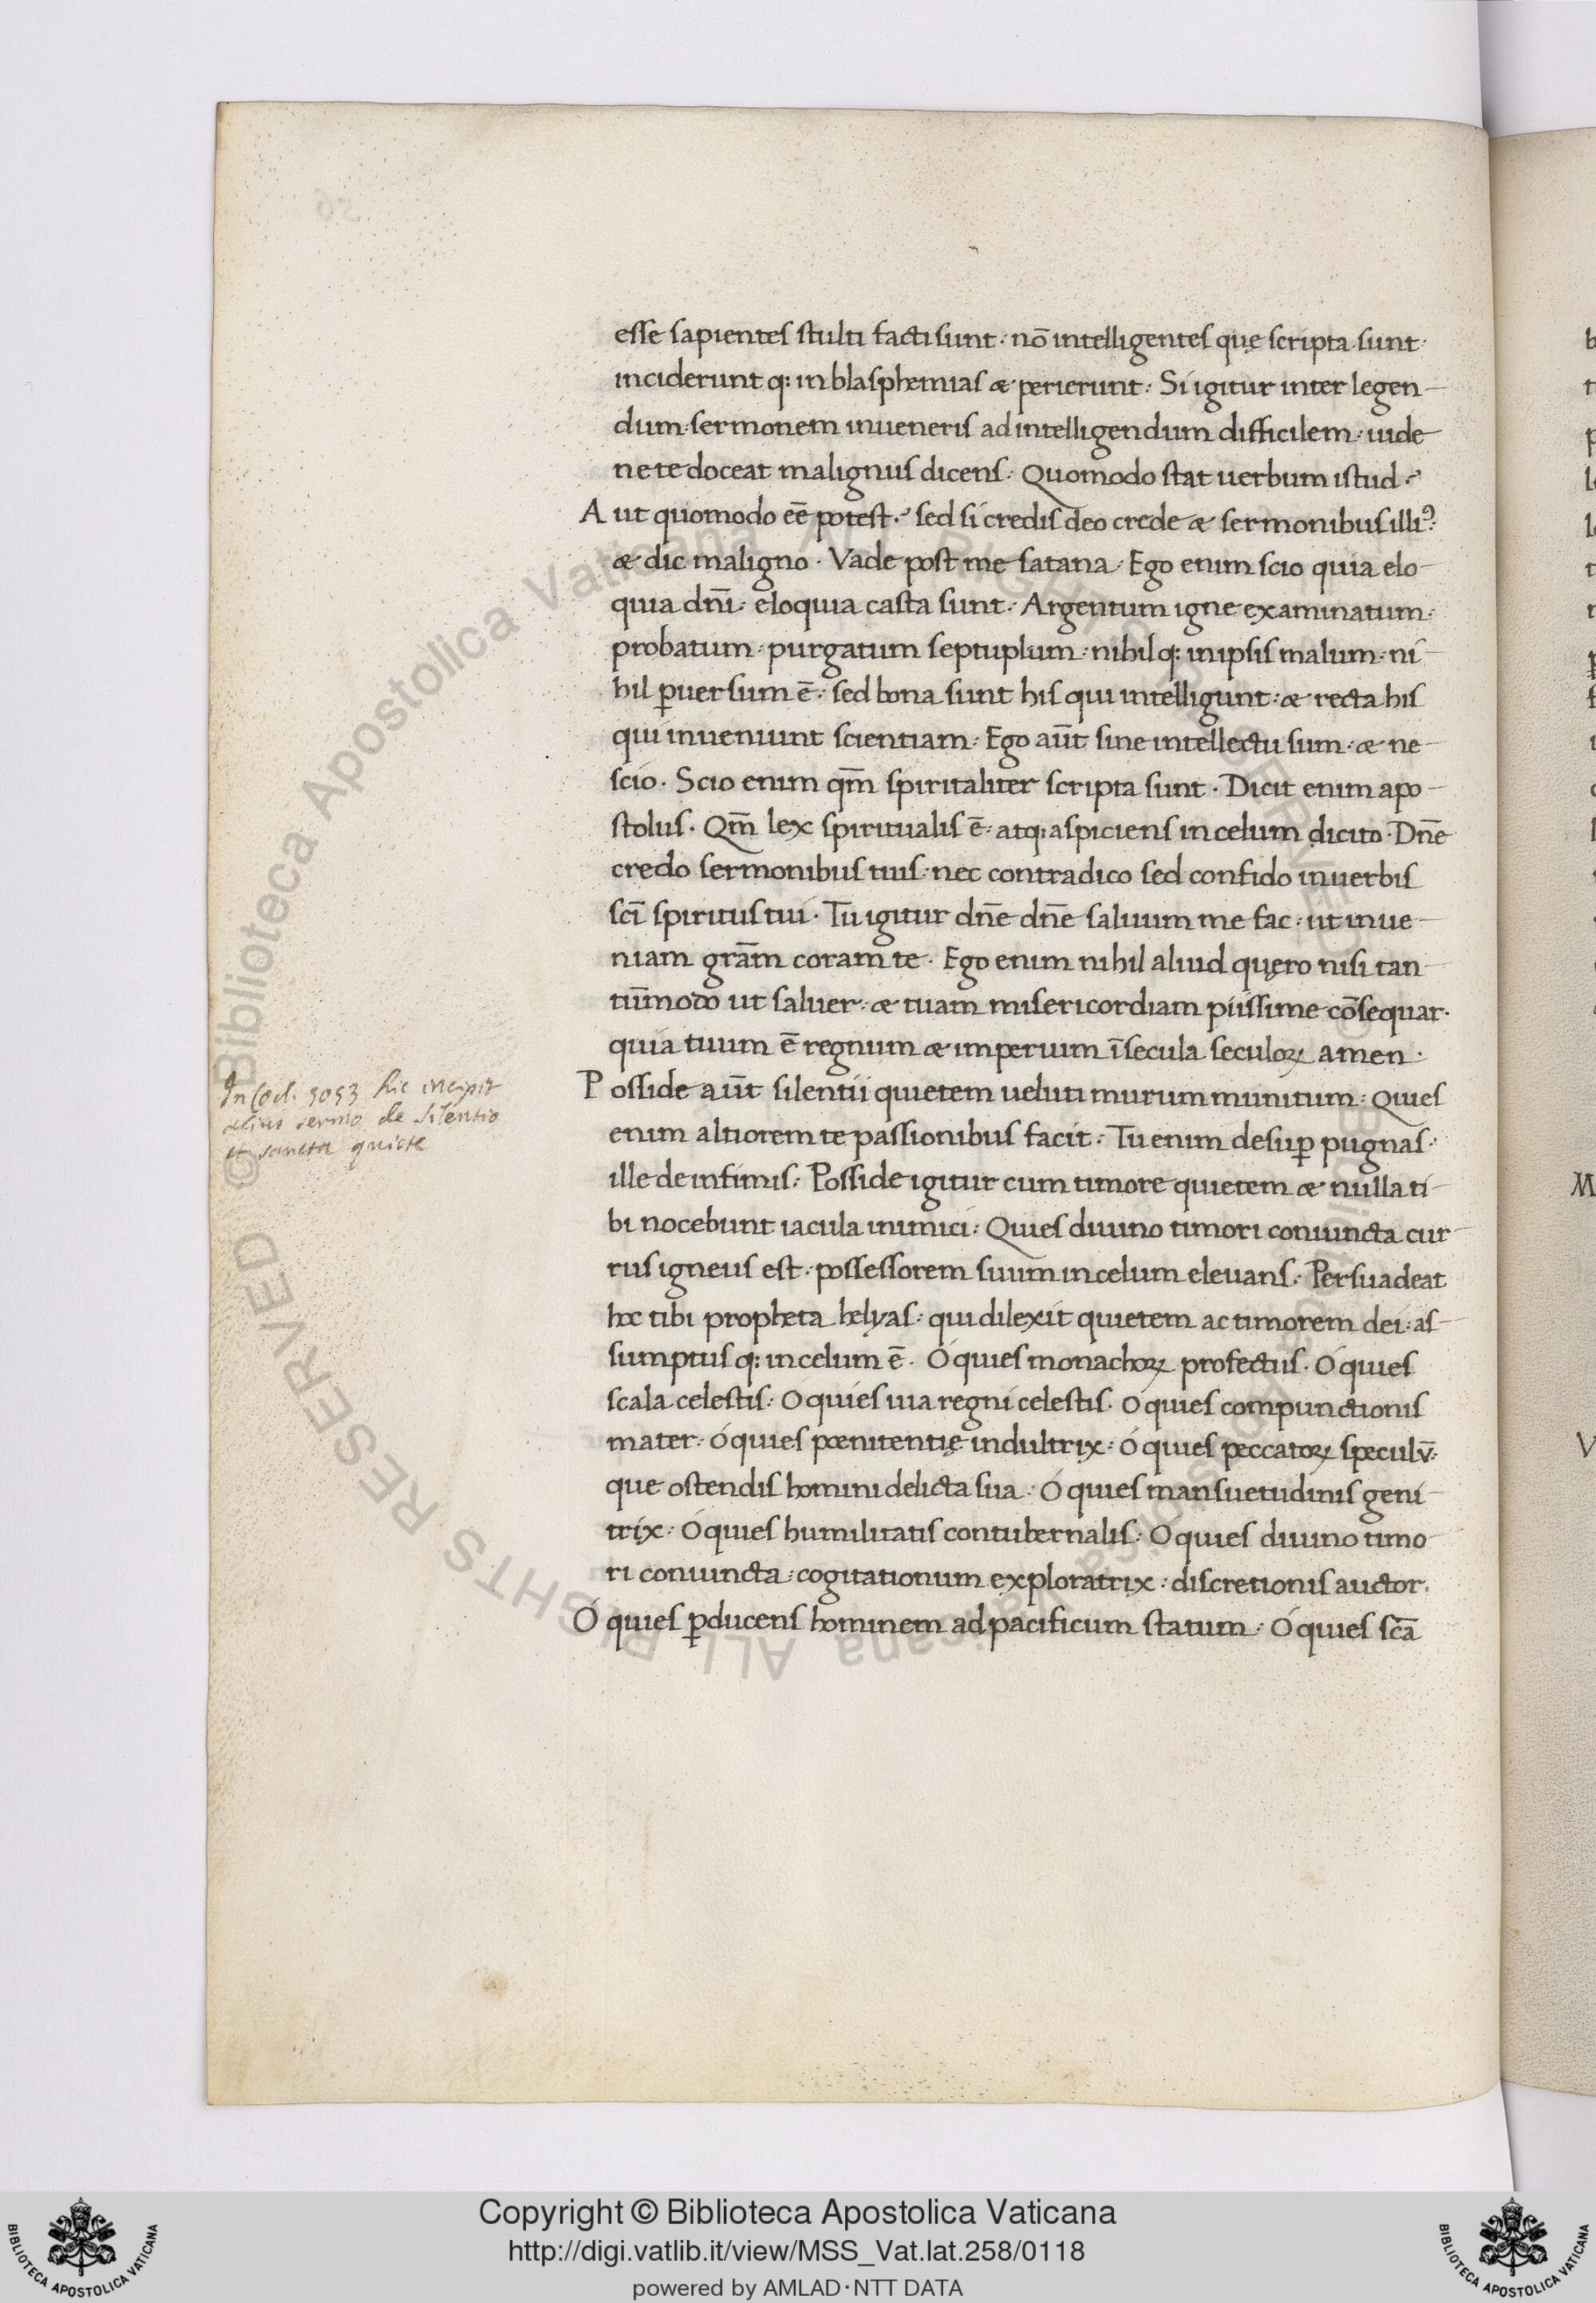 esse sapientes stulti facti sunt· nō intelligentes quę scripta sunt·
inciderunt q: in blasphemias & perierunt· Si igitur inter legen-
dum sermonem inueneris ad intelligendum difficilem· uide
ne te doceat malignus dicens· Quomodo stat uerbum istud·?
Aut quomodo eē potest·? sed si credis deo crede & sermonibus illiꝰ·
& dic maligno· Vade post me satana· Ego enim scio quia elo-
quia dn̄i· eloquia casta sunt· Argentum igne examinatum·
probatum· purgatum septuplum· nihil q: in ipsis malum· ni-
hil ꝑuersum ē· sed bona sunt his qui intelligunt· & recta his
qui inueniunt scientiam· Ego aūt sine intellectu sum· & ne-
scio· Scio enim qm̄ spiritaliter scripta sunt· Dicit enim apo-
stolus· Qm̄ lex spiritualis ē· atq: aspiciens in celum dicito· Dn̄e
credo sermonibus tuis· nec contradico sed confido in uerbis
sc̄i spiritus tui· Tu igitur dn̄e dn̄e saluum me fac· ut inue-
niam grām coram te· Ego enim nihil aliud quęro nisi tan-
tūmodo ut saluer· & tuam misericordiam piissime cōsequar·
quia tuum ē regnum & imperium ī secula seculoꝝ amen·
Posside aūt silentii quietem ueluti murum munitum· Quies
enim altiorem te passionibus facit· Tu enim desuꝑ pugnas·
ille de infimis· Posside igitur cum timore quietem & nulla ti-
bi nocebunt iacula inimici· Quies diuino timori coniuncta cur-
rus igneus est· possessorem suum in celum eleuans· Persuadeat
hoc tibi propheta helyas· qui dilexit quietem ac timorem dei· as-
sumptus q: in celum ē· Ó quies monachoꝝ profectus· Ó quies
scala celestis· O quies uia regni celestis· O quies compunctionis
mater· ó quies pœnitentię indultrix· Ó quies peccatoꝝ speculū·
que ostendis homini delicta sua· Ó quies mansuetudinis geni-
trix· O quies humilitatis contubernalis· O quies diuino timo-
ri coniuncta· cogitationum exploratrix· discretionis auctor·
Ó quies ꝑducens hominem ad pacificum statum· Ó quies sc̄a
In Cod. 3053 hic incipit
alius sermo de Silentio
et sancta quiete
© Biblioteca Apostolica Vaticana ALL RIGHTS RESERVED
Copyright © Biblioteca Apostolica Vaticana
http://digi.vatlib.it/view/MSS_Vat.lat.258/0118
powered by AMLAD·NTT DATA
BIBLIOTECA APOSTOLICA VATICANA
BIBLIOTECA APOSTOLICA VATICANA